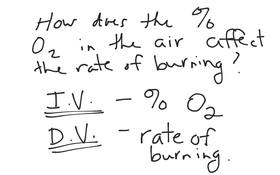 How does the %
O₂ in the air affect
the rate of burning?
I.V. - % O₂
D.V. - rate of
burning.